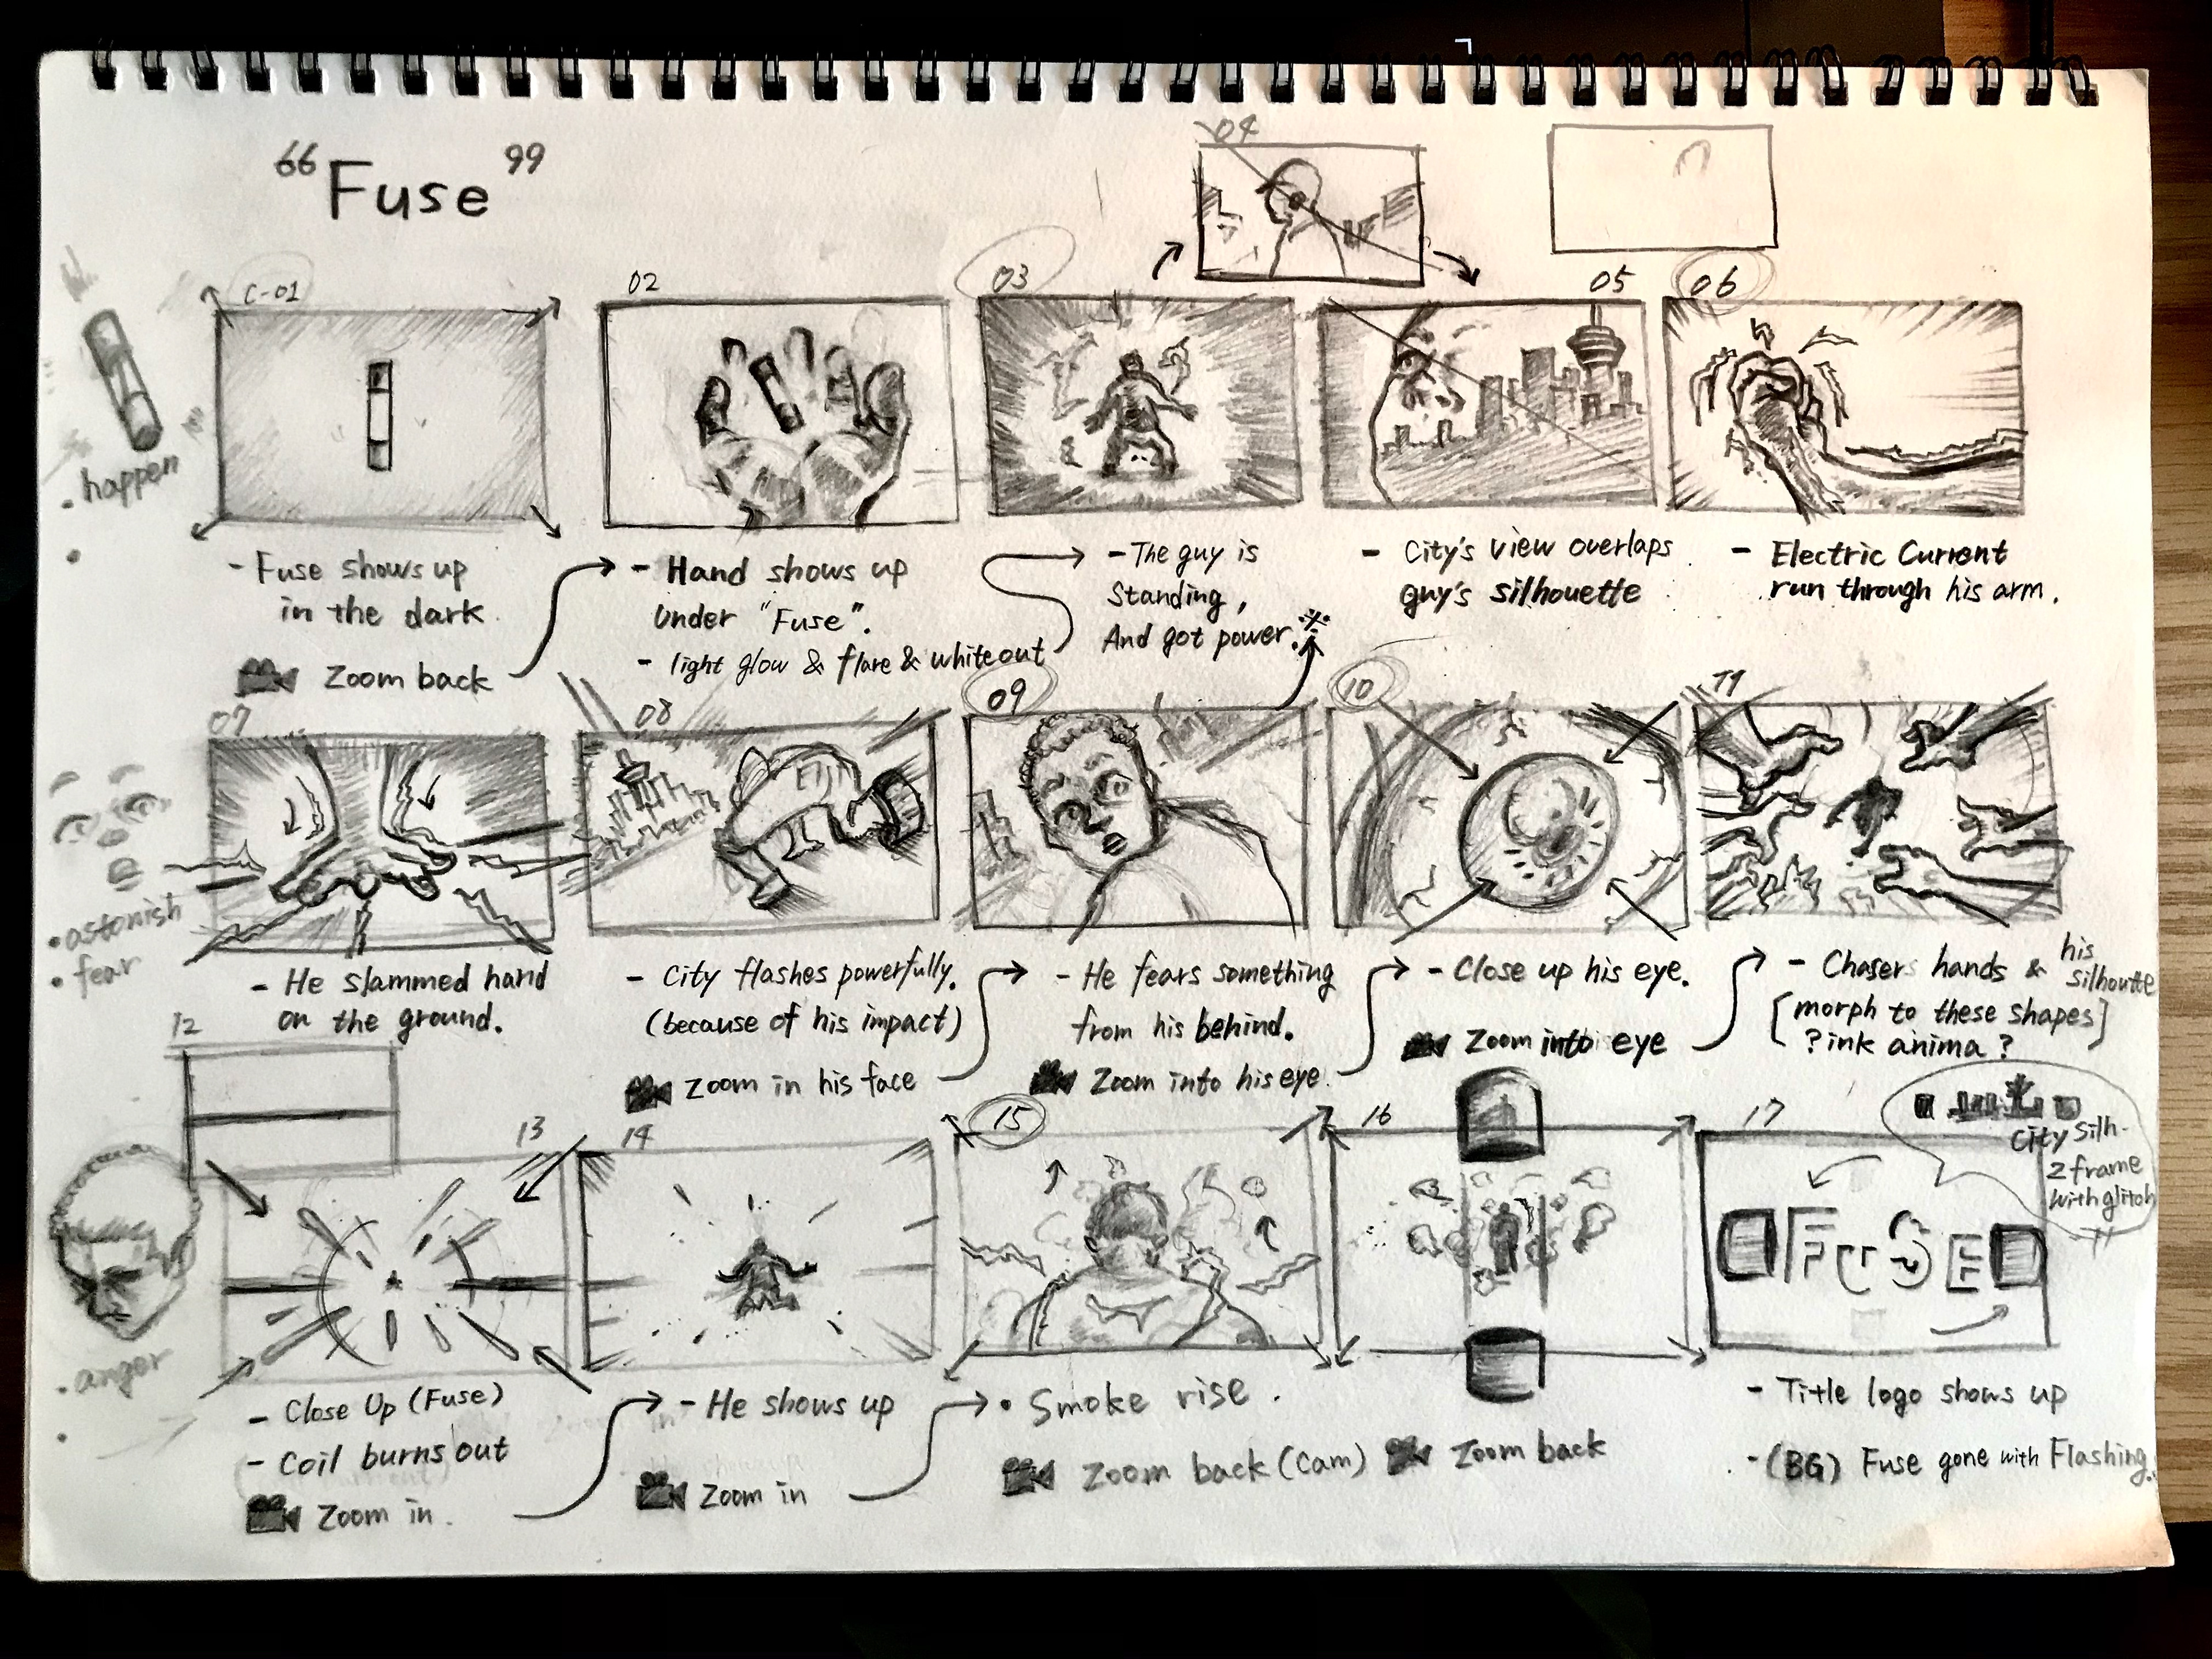 "Fuse"
04
C-01
02
03
05
06
. happen
- Fuse shows up
in the dark.
Zoom back
- Hand shows up
Under "Fuse".
- light glow & flare & whiteout
- The guy is
Standing,
And got power. ※
- City's view overlaps
guy's silhouette
- Electric Current
run through his arm.
07
08
09
10
11
• astonish
• fear
- He slammed hand
on the ground.
- City flashes powerfully.
(because of his impact)
Zoom in his face
- He fears something
from his behind.
Zoom into his eye.
- Close up his eye.
Zoom into eye
- Chasers hands & his
silhoutte
[morph to these shapes]
? ink anima ?
12
13
14
15
16
17
City Silh-
2 frame
with glitch
FUSE
. anger
- Close Up (Fuse)
- Coil burns out
Zoom in.
- He shows up
Zoom in
• Smoke rise.
Zoom back (Cam)
Zoom back
- Title logo shows up
- (BG) Fuse gone with Flashing.